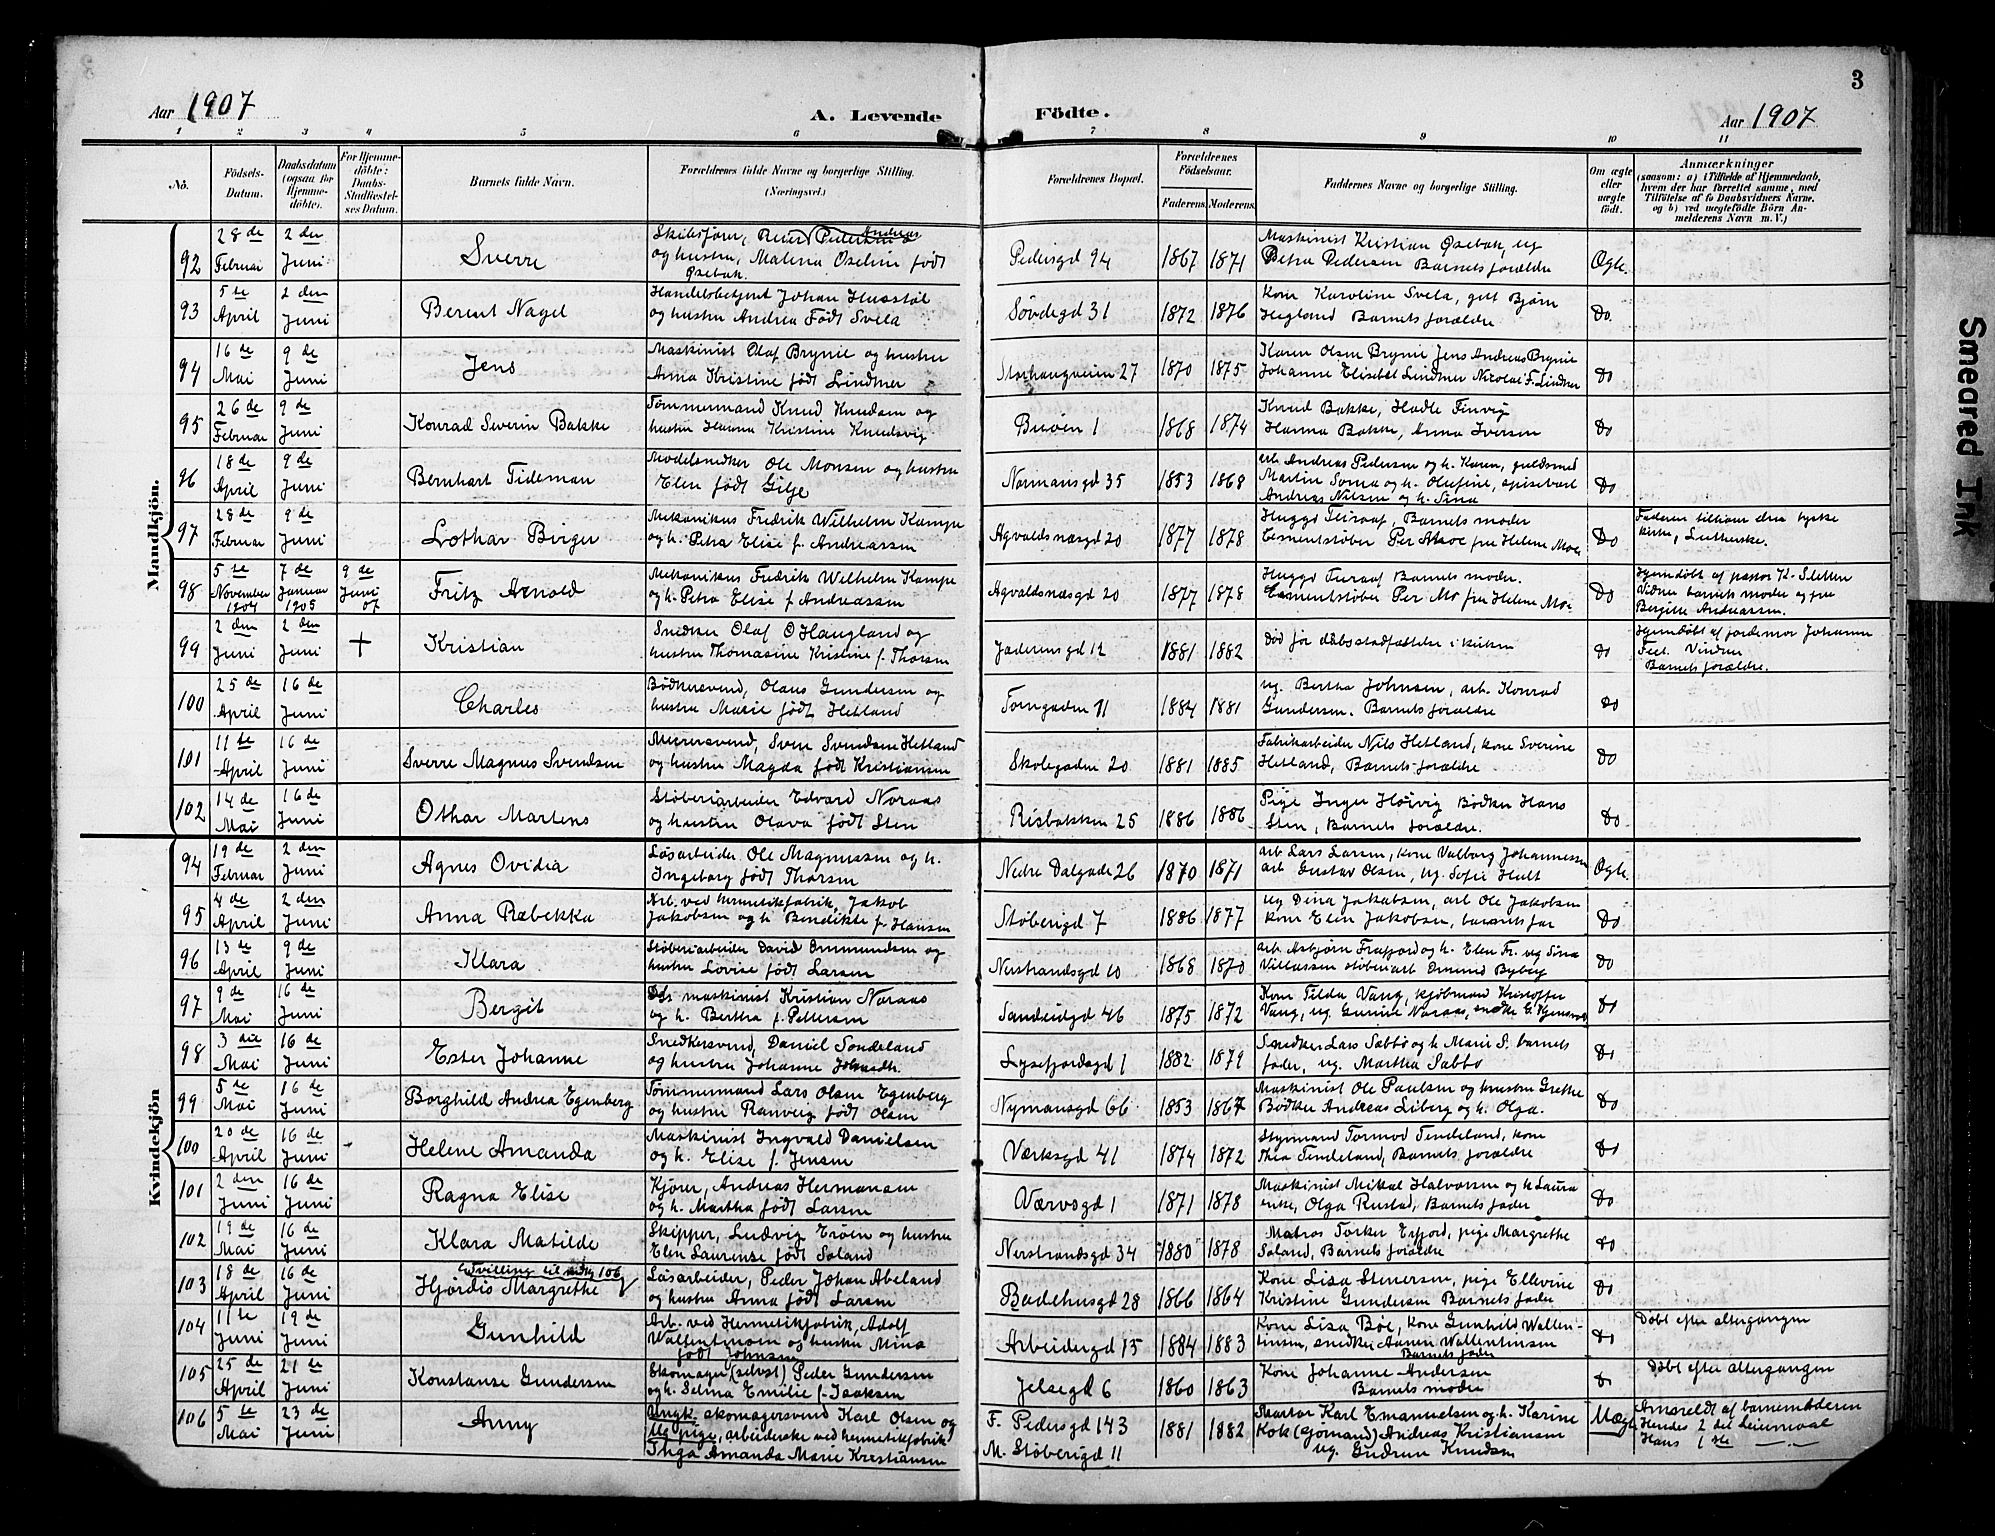 3
Aar 1907
A. Levende Födte.
Aar 1907
1 2 3 4 5 6 7 8 9 10 11
No.
Födsels-Datum.
Daabsdatum (ogsaa for Hjemme-döbte).
For Hjemme-döbte: Daabs-Stadfæstel-ses Datum.
Barnets fulde Navn.
Forældrenes fulde Navne og borgerlige Stilling. (Næringsvei.)
Forældrenes Bopæl.
Forældrenes Födselsaar.
Faderens. Moderens.
Faddernes Navne og borgerlige Stilling.
Om ægte eller uægte födt.
Anmærkninger
(saasom: a) i Tilfælde af Hjemmedaab, hvem der har forrettet samme, med Tilföielse af to Daabsvidners Navne, og b) ved uægtefödte Börn An-melderens Navn m. V.)
Mandkjön.
92 28de Februar 2den Juni Sverre
og hustru, Malena Oseline født Øsebak.
Pedersgd 94 1867 1871
Maskinist Kristian Øsebak, ug
Petra Pedersen Barnets forældre Ægte.
93 5te April 2den Juni Berent Nagel
Handelsbetjent Johan Husstøl
og hustru Andrea Født Svela
Søvdegd 31 1872 1876
Kone Karoline Svela, gift Bjørn
Hegland Barnets forældre Do.
94 16de Mai 9de Juni Jens
Maskinist Olaf Brynie og hustru
Anna Kristine født Lindner
Storhaugveien 27 1870 1875
Karen Olsen Brynie Jens Andreas Brynie
Johanne Elisabet Lindner Nicolai F. Lindner Do
95 26de Februar 9de Juni Konrad Severin Bakke
Tømmermand Knud Knudsen og
hustru Hanna Kristine Knudsvig
Buøen 1 1868 1874
Knud Bakke, Hadle Finvig
Hanna Bakke, Anna Iversen Do
96 18de April 9de Juni Bernhart Tideman
Modelsnedker Ole Monsen og hustru
Elen født Gilje
Normansgd 35 1853 1868
arb. Andreas Pedersen og h. Karen, guldsmed
Martin Soma og h. Olufine,
Andreas Nilsen og h. Sina Do
97 28de Februar 9de Juni Lothar Birger
Mekanikus Fredrik Wilhelm Kampe
og h. Petra Elise f. Andreassen
Agvaldsnæsgd 20 1877 1878
Barnets moder
Cementstøber Per Moe fru Helene Moe Do
Faderen tilhører den tyske
kirke, Lutherske.
98 5te November 1904 7de Januar 1905 9de Juni 07 Fritz Arnold
Mekanikus Fredrik Wilhelm Kampe
og h. Petra Elise f. Andreassen
Agvaldsnæsgd 20 1877 1878
Barnets moder.
Cementstøber Per Mo fru Helene Moe Do
Hjemdøbt af pastor K. Sletten
Vidner barnets moder og fru
Bergitte Andreassen.
99 2den Juni 2den Juni + Kristian
Snedker Olaf O Haugland og
hustru Thomasine Kristine f. Thorsen
Jaderensgd 12 1881 1882
Død før daabsstadfæstelse i kirken Do
Hjemdøbt af jordemor Johanne
Feet. Vidner
Barnets forældre.
100 25de April 16de Juni Charles
Bødkersvend, Olaus Gundersen og
hustru Marie født Hetland
Torngaden 11 1884 1881
ug. Bertha Johnsen, arb. Konrad
Gundersen. Barnets forældre Do
101 11te April 16de Juni Sverre Magnus Svendsen
Murersvend, Sven Svendsen Hetland
og hustru Magda født Kristiansen
Skolegaden 20 1881 1885
Fabrikarbeider Nils Hetland, kone Sverine
Hetland, Barnets forældre Do
102 14de Mai 16de Juni Othar Martens
Støberiarbeider Edvard Noraas
og hustru Olava født Sten
Risbakken 25 1886 1886
Pige Inger Høivig Bødker Hans
Sten, Barnets forældre. Do
Kvindekjön
94 19de Februar 2den Juni Agnes Ovidia
Løsarbeider Ole Magnussen og h.
Ingeborg født Thorsen
Nedre Dalgade 26 1870 1871
arb Lars Larsen, kone Valborg Johannessen
arb Gustav Olsen, ug. Sofie Hult Ægte.
95 4de April 2den Juni Anna Rebekka
Arb. ved hermetikfabrik, Jakob
Jakobsen og h Bendikte f. Hansen
Støberigd 7 1886 1877
ug Dina Jakobsen, arb Ole Jakobsen
kone Elen Jakobsen, barnets far Do
96 13de April 9de Juni Klara
Støberiarbeider David Ommundsen og
hustru Lovise født Larsen
Nerstrandsgd 10 1868 1870
arb Asbjørn Frafjord og h. Elen Fr. ug Sina
Villassen støberiarb Omund Byberg Do
97 9de Mai 16de Juni Bergit
maskinist Kristian Noraas
og h. Bertha f. Pettersen
Sandeidgd 46 1875 1872
Kone Tilda Vang, kjøbmand Kristoffer
Vang, ug. Gurine Noraas, Do
98 3die Mai 16de Juni Ester Johanne
Snedkersvend, Daniel Sondeland
og hustru Johanne
Lysefjordsgd 1 1882 1879
Snedker Lars Sabbø og h Marie S. barnets
fader, ug. Martha Sabbø Do
99 5te Mai 16de Juni Borghild Andrea Egenberg
Tømmermand Lars Olsen Egenberg
og hustru Ranveig født Olsen
Nymansgd 66 1853 1867
Maskinist Ole Paulsen og hustru Grethe
Bødker Andreas Liberg og h. Olga. Do
100 20de April 16de Juni Helene Amanda
Maskinist Ingvald Danielsen
og h. Elise f. Jensen
Værksgd 41 1874 1872
Styrmand Tormod Tendeland, kone
Thea Tendeland, Barnets forældre Do
101 2den Juni 16de Juni Ragna Elise
Kjører, Andreas Hermansen
og h. Martha født Larsen
Værvsgd 1 1871 1878
Maskinist Mikal Halvorsen og h Laura
enke, Olga Rustad, Barnets fader Do
102 19de Mai 16de Juni Klara Matilde
Skipper, Ludvig Erøen og hustru
Elen Laurense født Soland
Nerstrandsgd 34 1880 1878
Matros Torker Erfjord, pige Margrethe
Soland, Barnets forældre Do
103 18de April 16de Juni tvilling til 106
Hjørdis Margrethe
Løsarbeider, Peder Johan Abeland
og hustru Anna født Larsen
Badehusgd 28 1866 1864
Kone Lisa Stenersen, pige Ellevine
Kristine Gundersen Barnets fader Do
104 11te Juni 19de Juni Gunhild
Arb. ved Hermetikfabrik, Adolf
Wallentinsen og hustru Mina
født Johnsen
Arbeidergd 15 1884 1883
Kone Lisa Bøe, Kone Gunhild Wallen-
tinsen, snedker Aamin Wallentinsen
Barnets fader Do
Døbt efter altergangen
105 25de April 21de Juni Konstanse Gundersen
Skomager (selvst) Peder Gundersen
og h. Selma Emilie f. Isaksen
Jelsegd 6 1860 1863
Kone Johanne Andersen
Barnets moder Do
Døbt efter altergangen
106 5te Mai 23de Juni Anny
Ungk. skomagersvend Karl Olsen og
pige, arbeiderske ved hermetikfabrik
Inga Amanda Marie Kristiansen
F. Pedersgd 143
M. Støberigd 11 1881 1882
Murtor Karl Emanuelsen og h. Karine
Kok (sjømand) Andreas Kristiansen
ug. Gudrun Knudsen Uægte
Anmeldt af barnemoderen
Hendes 2det Leiermaal
Hans 1ste — " —
Smeared Ink